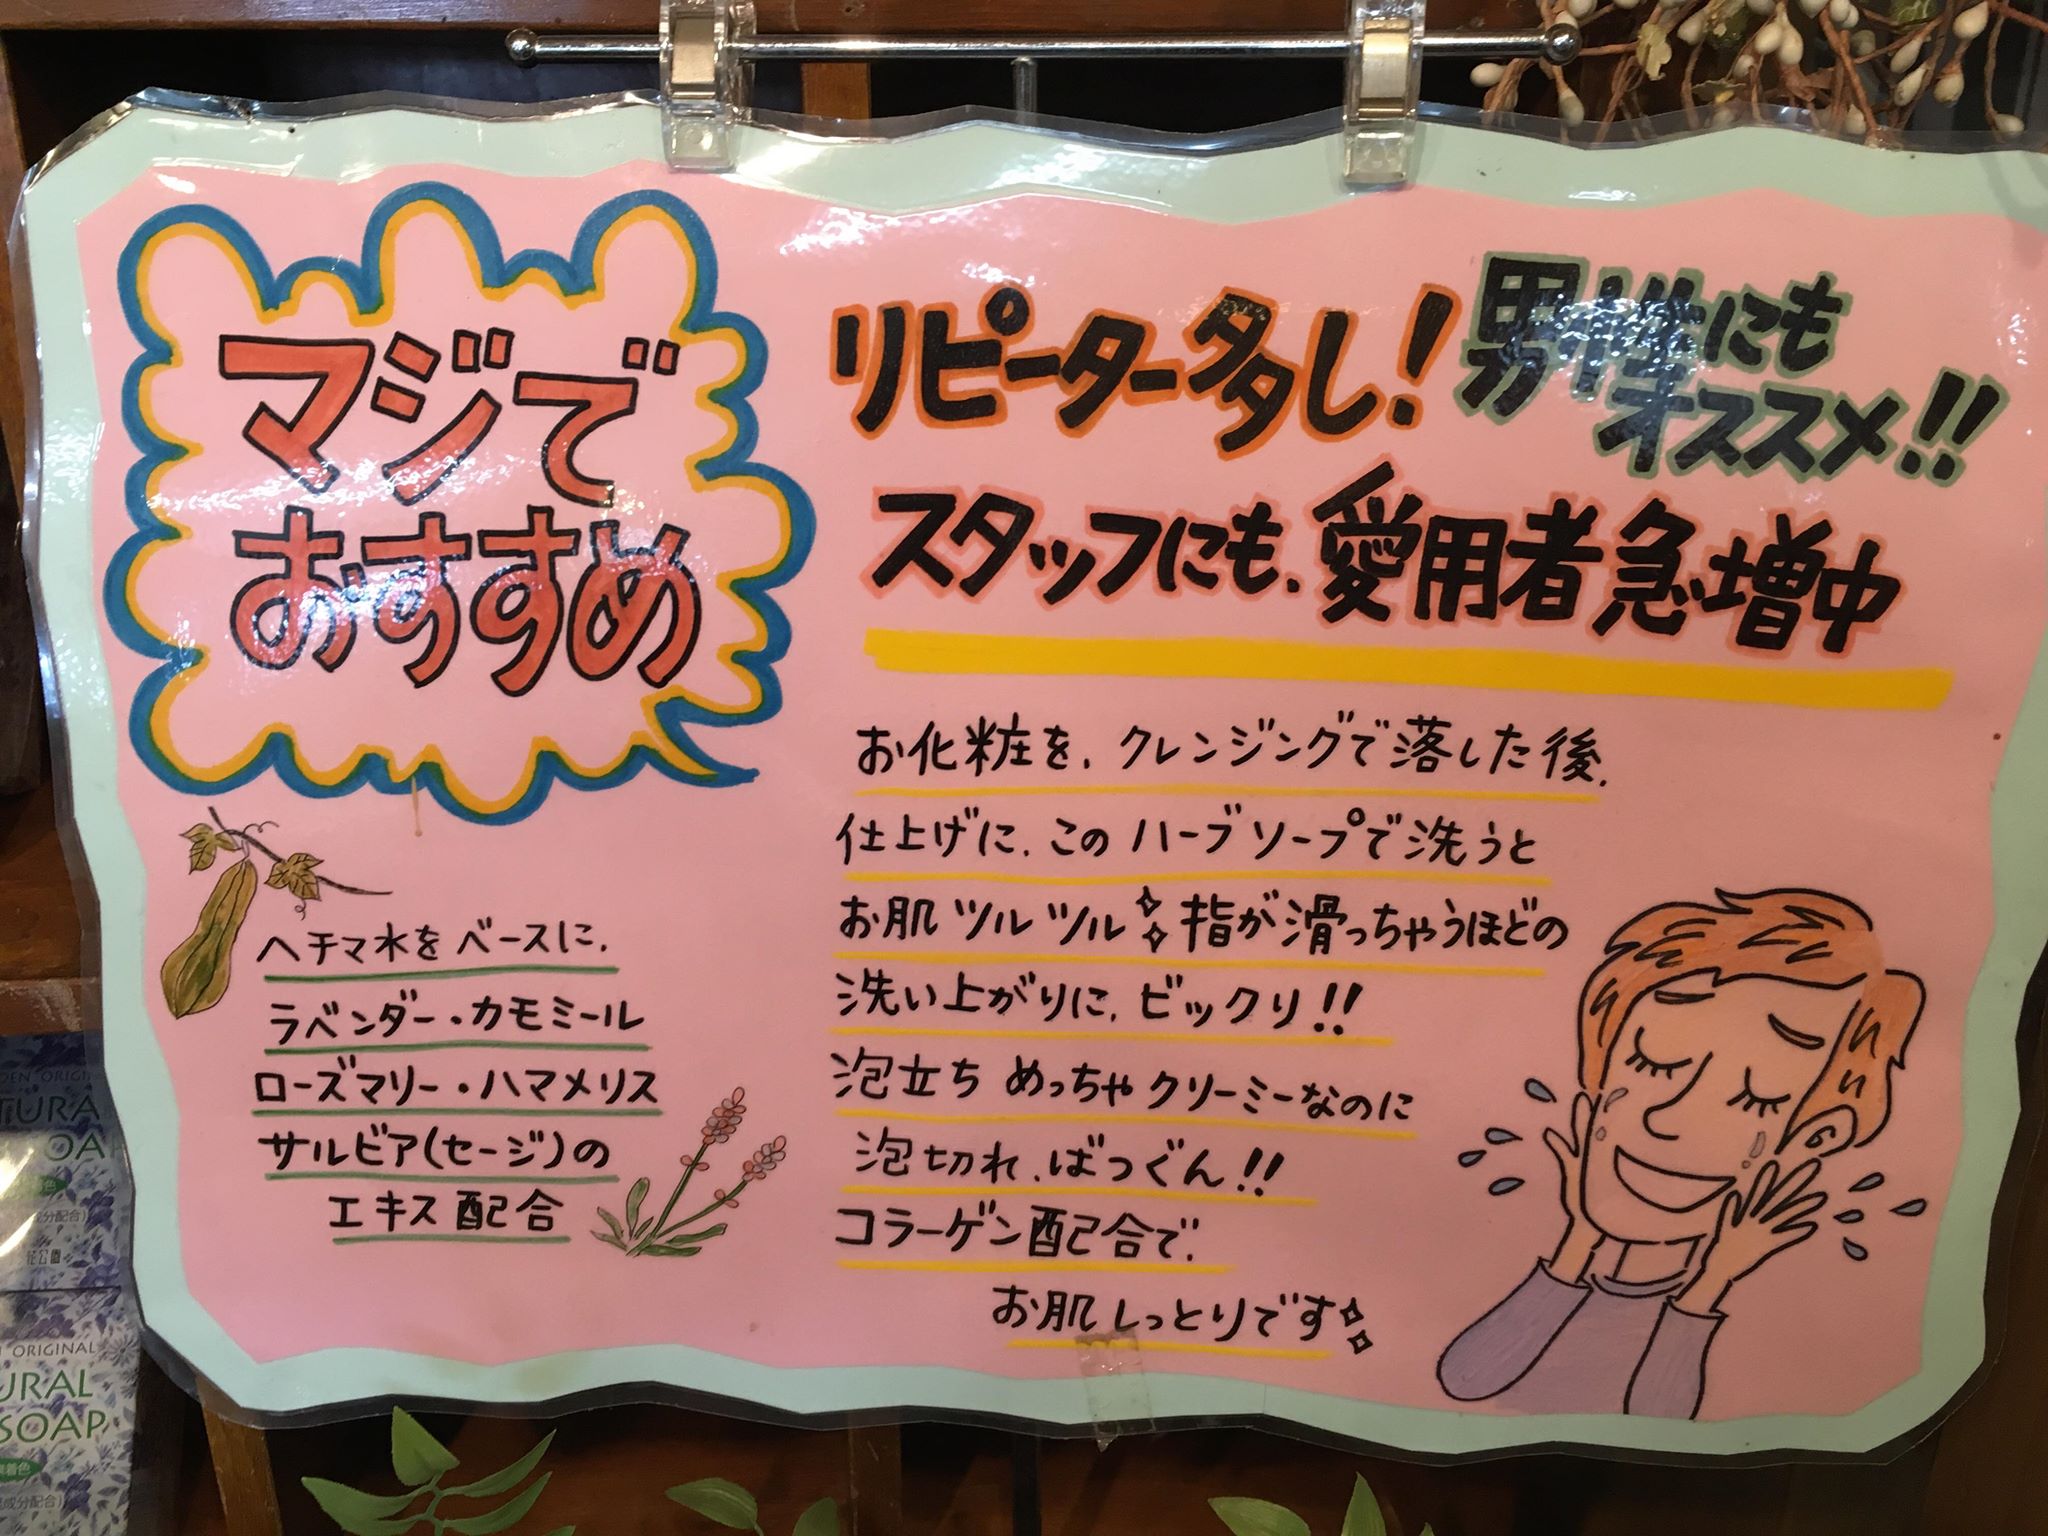 マジで
おすすめ
リピーター多し!
男性にも
オススメ!!
スタッフにも、愛用者急増中
お化粧を、クレンジングで落した後、
仕上げに、このハーブソープで洗うと
お肌ツルツル 指が滑っちゃうほどの
洗い上がりに、ビックリ!!
泡立ちめっちゃクリーミーなのに
泡切れ、ばつぐん!!
コラーゲン配合で、
お肌しっとりです
ヘチマ水をベースに、
ラベンダー・カモミール
ローズマリー・ハマメリス
サルビア(セージ)の
エキス配合
ORIGINAL
URAL
SOAP